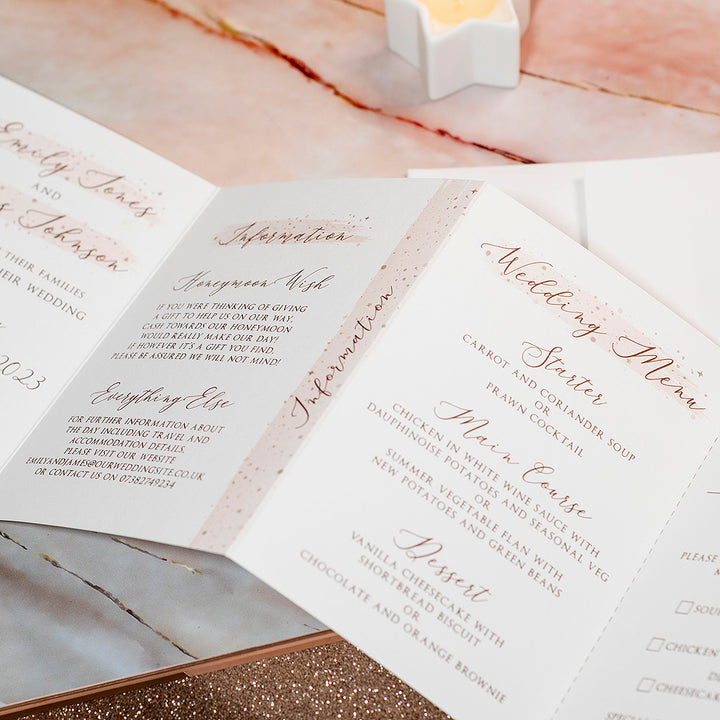 Emily Jones
AND
Johnson
THEIR FAMILIES
WEDDING
2023
Information
Honeymoon Wish
IF YOU WERE THINKING OF GIVING
A GIFT TO HELP US ON OUR WAY,
CASH TOWARDS OUR HONEYMOON
WOULD REALLY MAKE OUR DAY!
IF HOWEVER IT'S A GIFT YOU FIND,
PLEASE BE ASSURED WE WILL NOT MIND!
Everything Else
FOR FURTHER INFORMATION ABOUT
THE DAY INCLUDING TRAVEL AND
ACCOMMODATION DETAILS,
PLEASE VISIT OUR WEBSITE
EMILYANDJAMES@OURWEDDINGSITE.CO.UK
OR CONTACT US ON 07382749234
Information
Wedding Menu
Starter
CARROT AND CORIANDER SOUP
OR
PRAWN COCKTAIL
Main Course
CHICKEN IN WHITE WINE SAUCE WITH
DAUPHINOISE POTATOES AND SEASONAL VEG
OR
SUMMER VEGETABLE FLAN WITH
NEW POTATOES AND GREEN BEANS
Dessert
VANILLA CHEESECAKE WITH
SHORTBREAD BISCUIT
OR
CHOCOLATE AND ORANGE BROWNIE
PLEASE
SOU
CHICKEN
CHEESECA